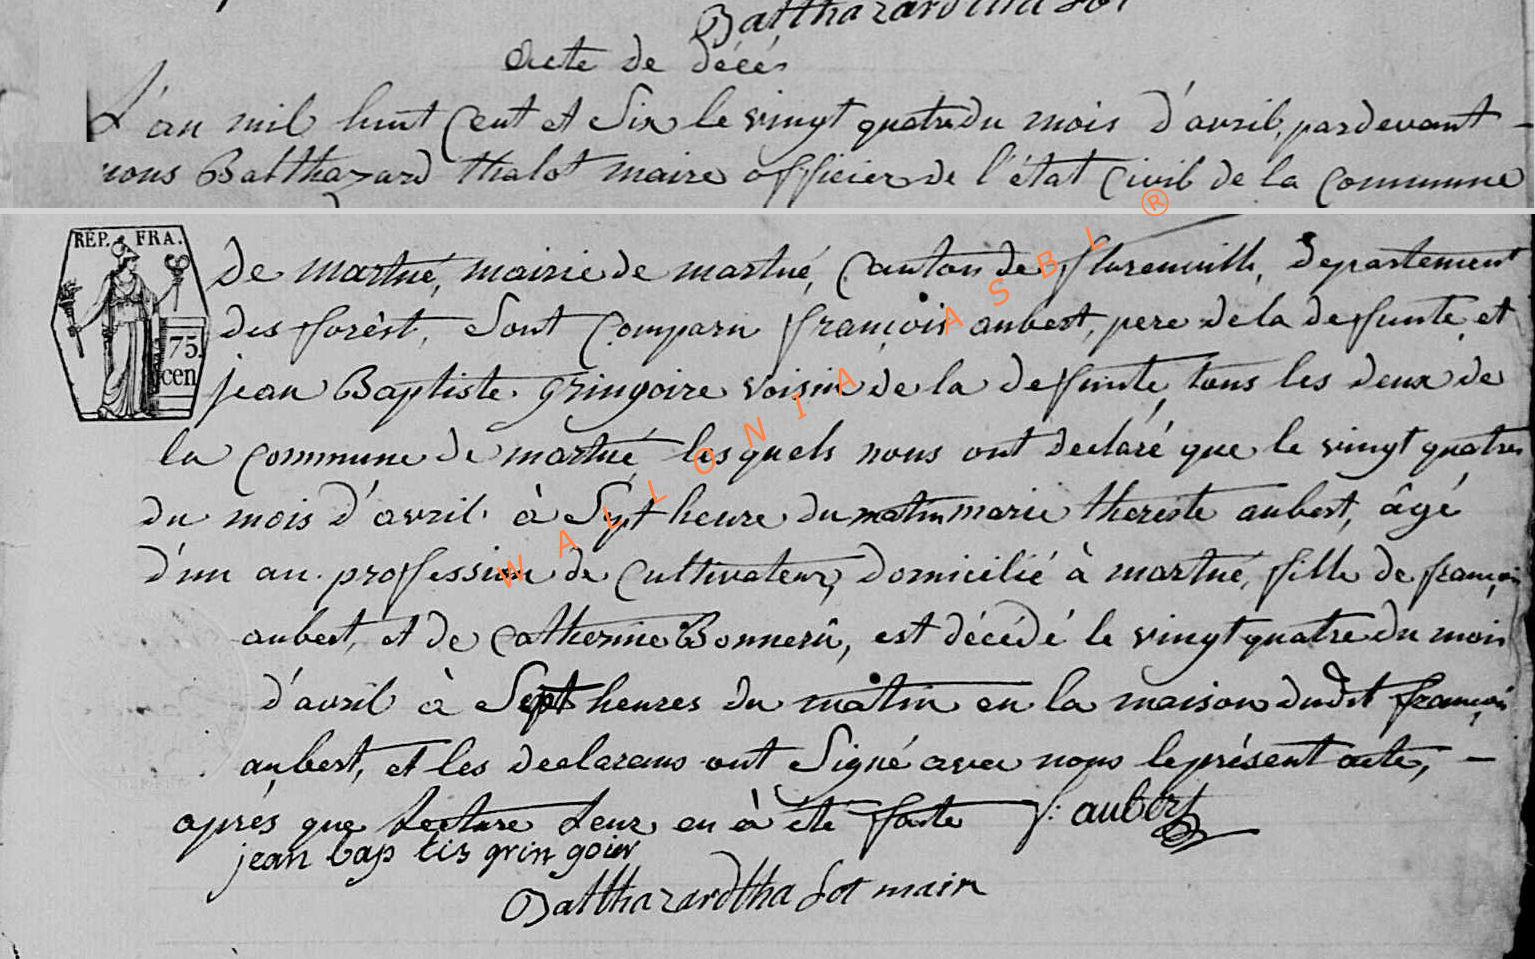 Balthazard thalot
Acte de décés
L'an mil huit Cent et Six le vingt quatre du mois d'avril, pardevant –
nous Balthazard thalot maire officier de l'état Civil de la Commune
REP. FRA.
75.
cen
de martué, mairie de martué, Canton de florenville, Departement
des forêst, Sont Comparu françois aubert, pere de la deffunte et
jean Baptiste gringoire voisin de la deffunte, tous les deux de
la Commune de martué lesquels nous ont declaré que le vingt quatre
du mois d'avril à Sept heure du matin marie thereste aubert, âgé
d'un an profession de Cultivateur, Domicilié à martué, fille de françois
aubert, et de Catherine Bonnerû, est décédé le vingt quatre du mois
d'avril à Sept heures du matin en la maison dudit françois
aubert, et les declarans ont Signé avec nous le présent acte, –
aprés que Lecture Leur en à été faite f: aubert
jean bap tis grin goier
Balthazard thalot main
WALLONIA ASBL ®